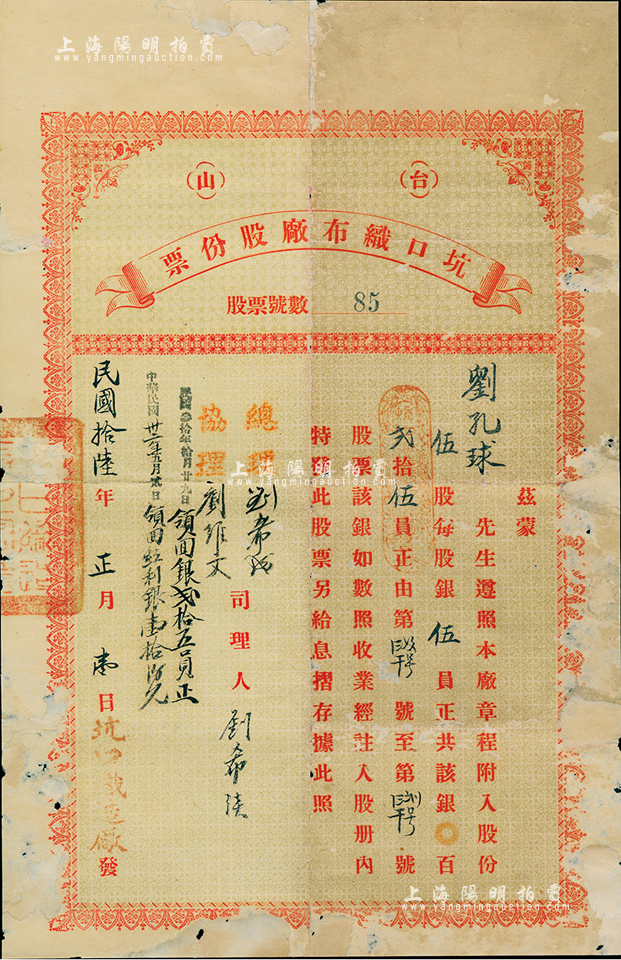 上海陽明拍賣
www.yangmingauction.com
（台）（山）
坑口織布廠股份票
股票號數 85
茲蒙
劉孔球 先生遵照本廠章程附入股份
伍股每股銀伍員正共該銀 百
弍拾伍員正由第 號至第 號
股票該銀如數照收業經註入股册內
特發此股票另給息摺存據此照
總理 劉希
協理 劉維文
司理人 劉希
民國叁拾年拾月廿九日領回銀弍拾五員正
中華民國卅 年五月 日領回紅利銀壹拾
民國拾陸年正月 日坑口織造廠發
上海陽明拍賣
www.yangmingauction.com
上海陽明拍賣
www.yangmingauction.com